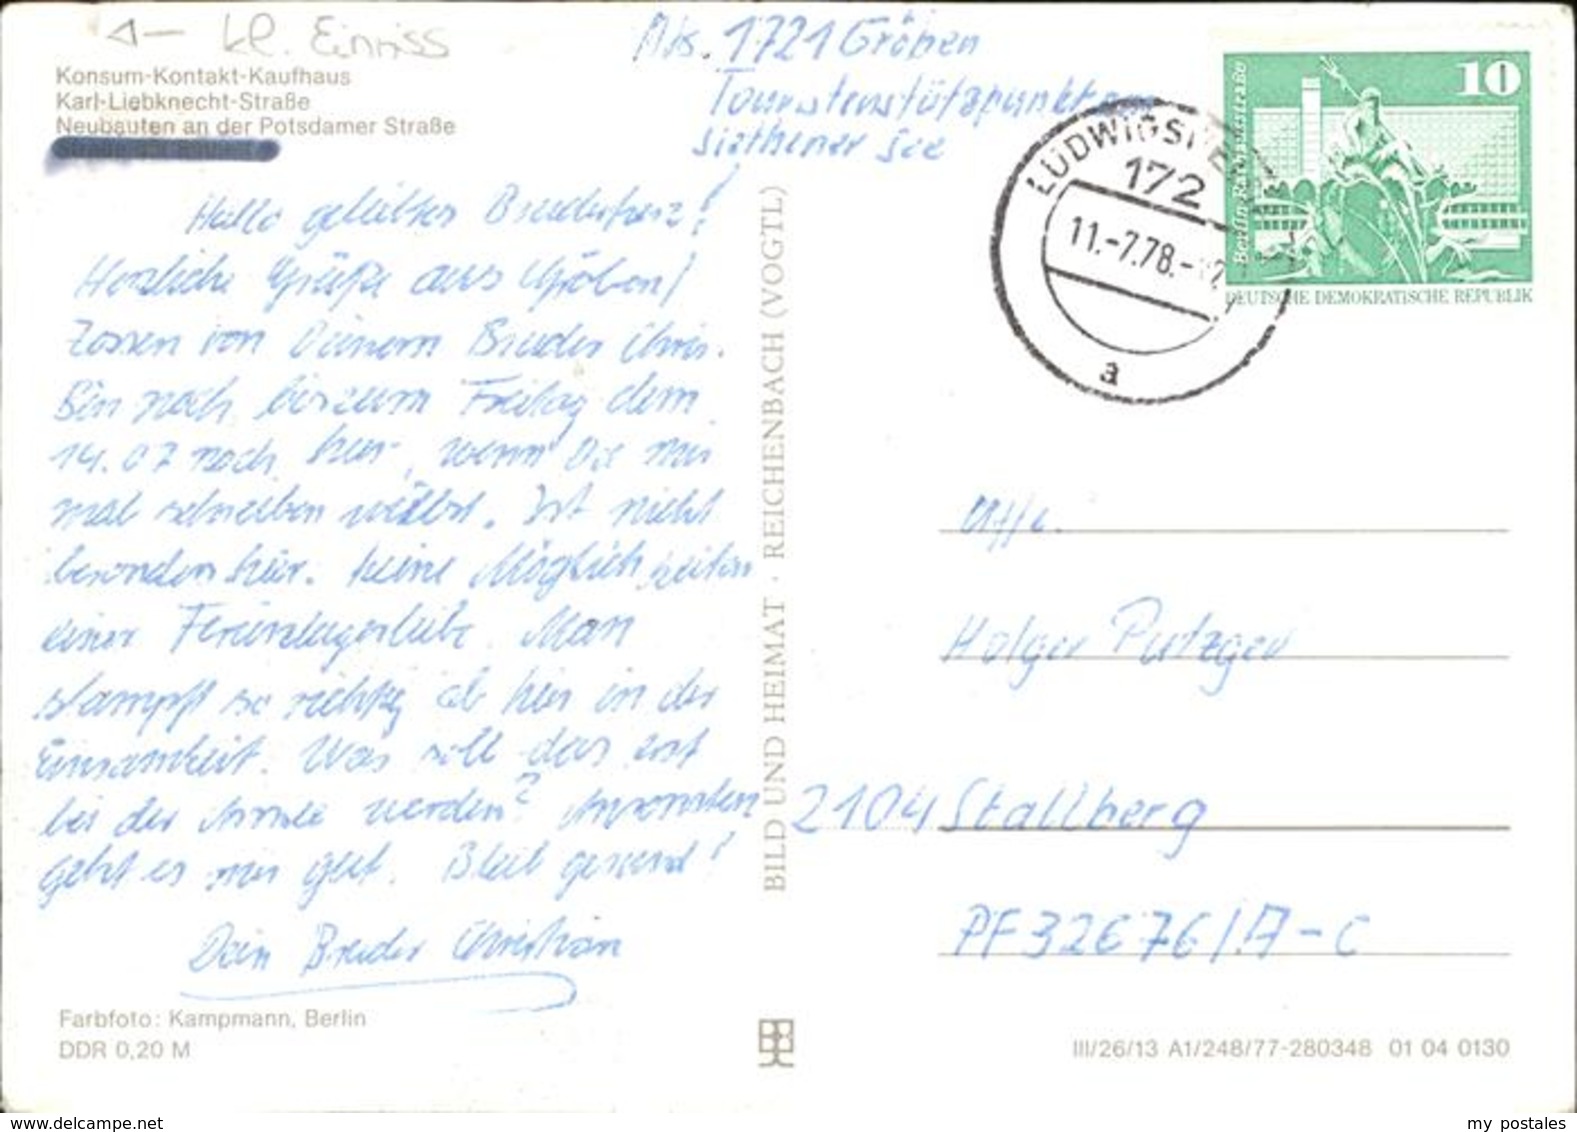 kl. Einriss
Konsum-Kontakt-Kaufhaus
Karl-Liebknecht-Straße
Neubauten an der Potsdamer Straße
Abs. 1721 Gröben
Touristenstützpunkt am
Siethener See
10
Berlin, Rathausstraße
DEUTSCHE DEMOKRATISCHE REPUBLIK
172
11.-7.78.-
a
Hallo geliebtes Bruderherz!
Herzliche Grüße aus Gröben/
Zossen von Deinem Bruder Chris.
Bin noch bis zum Freitag dem
14.07 noch hier, wenn Du mir
mal schreiben willst. Ist nicht
besonders hier. Keine Möglichkeiten
einer Ferienlagerliebe. Man
stumpft so richtig ab hier in der
Einsamkeit. Was soll das erst
bei der Armee werden? Ansonsten
geht es mir gut. Bleib gesund!
Dein Bruder Christian
BILD UND HEIMAT · REICHENBACH (VOGTL)
Uffz.
Holger Putzger
2104 Stallberg
PF 32676/A-C
Farbfoto: Kampmann, Berlin
DDR 0,20 M
III/26/13 A1/248/77-280348 01 04 0130
www.delcampe.net
my_postales